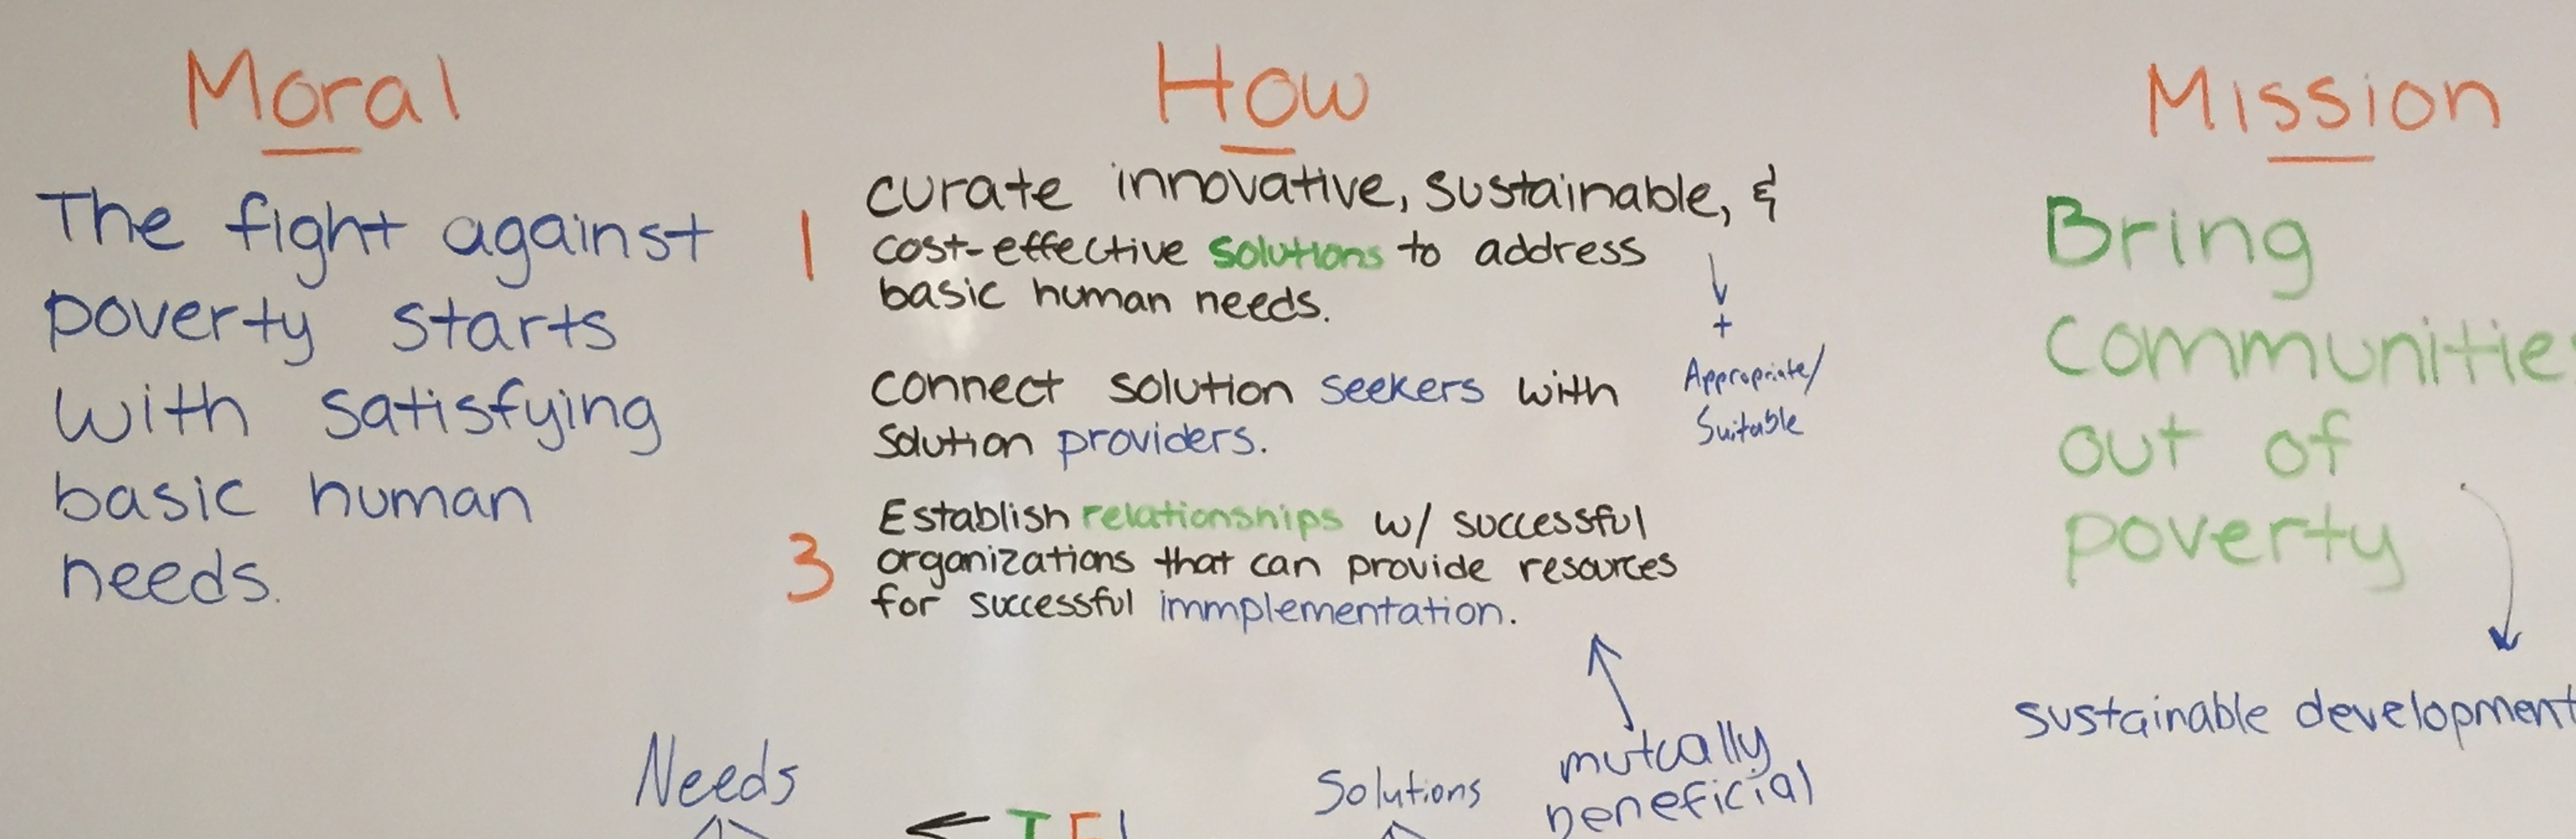 Moral
The fight against
poverty starts
with satisfying
basic human
needs.
How
1
curate innovative, sustainable, &
cost-effective solutions to address
basic human needs.
+
Appropriate/
Suitable
connect solution seekers with
solution providers.
3
Establish relationships w/ successful
organizations that can provide resources
for successful immplementation.
mutually
beneficial
Mission
Bring
communities
out of
poverty
sustainable development
Needs
Solutions